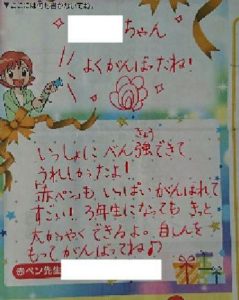 ▼ここには何も書かないでね。
ちゃん
よくがんばったね!
いっしょにべん強できて
きょう
うれしかったよ!
赤ペンも、いっぱいがんばれて
すごい!3年生になっても きっと
大かつやくできるよ。自しんを
もって がんばってね♪
赤ペン先生